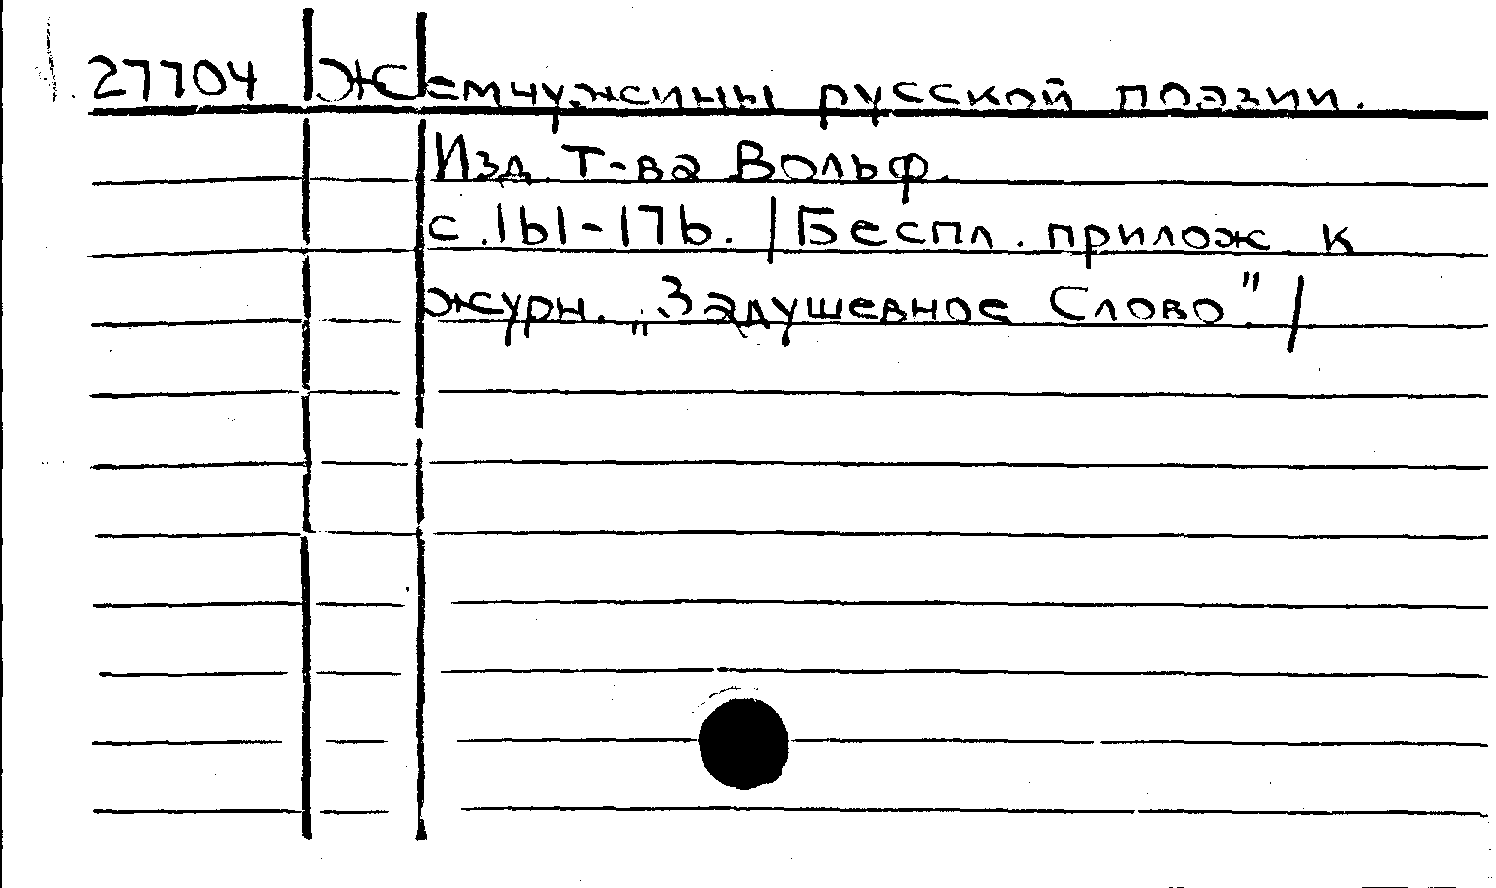 27704 Жемчужины русской поэзии.
Изд. Т-ва Вольф.
с. 161-176. /Беспл. прилож к
журн. „Задушевное Слово"/